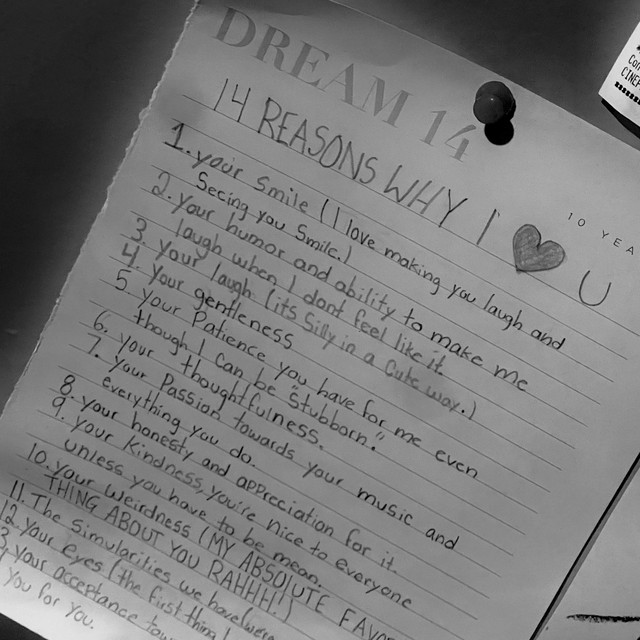 DREAM 14
14 REASONS WHY I U
10 YEA
CINE
1. your smile (I love making you laugh and
Seeing you Smile.)
2. Your humor and ability to make me
laugh when I dont feel like it.
3. Your laugh (it's Silly in a Cute way.)
4. your gentleness
5. your Patience you have for me even
though I can be Stubborn!!
6. your thoughtfulness.
7. your Passion towards your music and
everything you do.
8. your honesty and appreciation for it
9. your kindness, you're nice to everyone
unless you have to be mean
10. your weirdness (MY ABSOLUTE FAVOR
THING ABOUT YOU RAHHH!)
11. The simularities we have
12. your eyes (the first thing I
your acceptance
you for you.